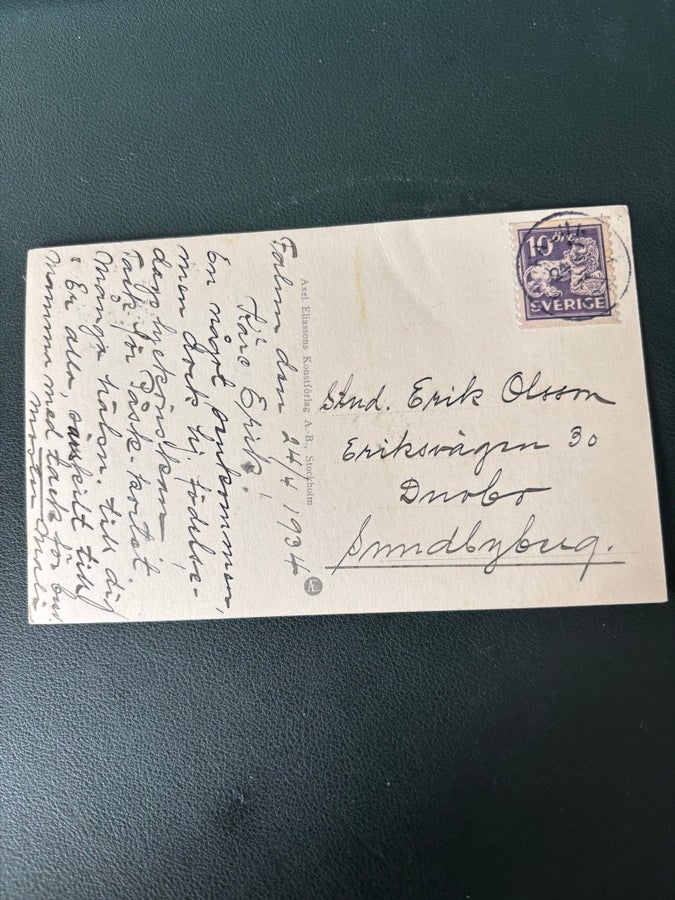 Falun den 24/4 1934
Käre Erik.
En något senkommen,
men dock hj. födelse-
dags lyckönskan
Tack för Påsk-kortet
Många hälsn. till dig
Er alla, särskilt till
mamma med tack för
Axel Eliassons Konstförlag A.-B., Stockholm
ÆE
10 ÖRE
SVERIGE
Stud. Erik Olsson
Eriksvägen 30
Duvbo
Sundbyberg.